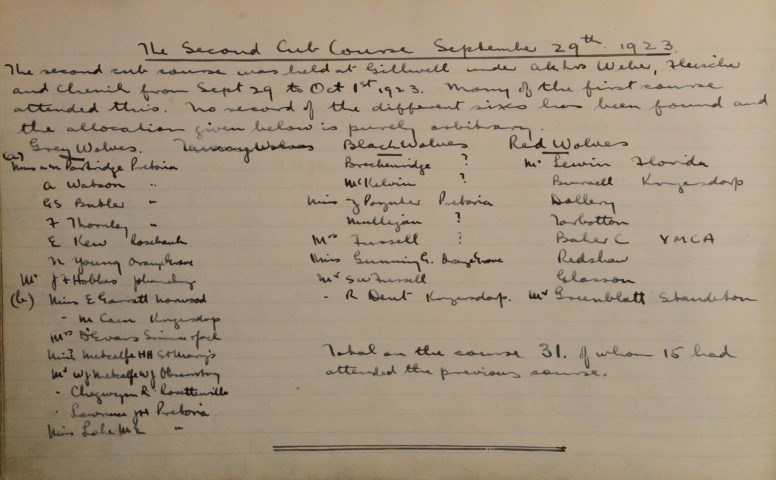 The Second Cub Course September 29th 1923.
The second cub course was held at Gillwell under Weber, Fleischer
and Chenik from Sept 29 to Oct 1st 1923. Many of the first course
attended this. No record of the different sixes has been found and
the allocation given below is purely arbitrary.
Grey Wolves. Tawney Wolves Black Wolves Red Wolves
(a) Miss Partridge Pretoria Brechenridge ? Mr Lewin Florida
A Watson " McKelvin ? Burnell Krugersdorp
GS Butler " Miss Poynter Pretoria Dollery
F Thornley " Mulligan ? Torbotton
E Kew Rosebank Mrs Fussell ? Baker C YMCA
N Young Orange Grove Miss Gunning G. Orange Grove Redshaw
Mr J F Hobbes Mr S W Fussell Glasson
(b) Miss E Garratt Norwood - R Dent Krugersdorp. Mr Greenblatt Standerton
- M Caen Krugersdorp
Mrs D Evans
Miss Metcalfe HH St Mary's
Mr Metcalfe W J Observatory
- Chegwyn R Rosettenville
- Lawrence Pretoria
Miss Lake M E "
Total on the course 31. of whom 15 had
attended the previous course.